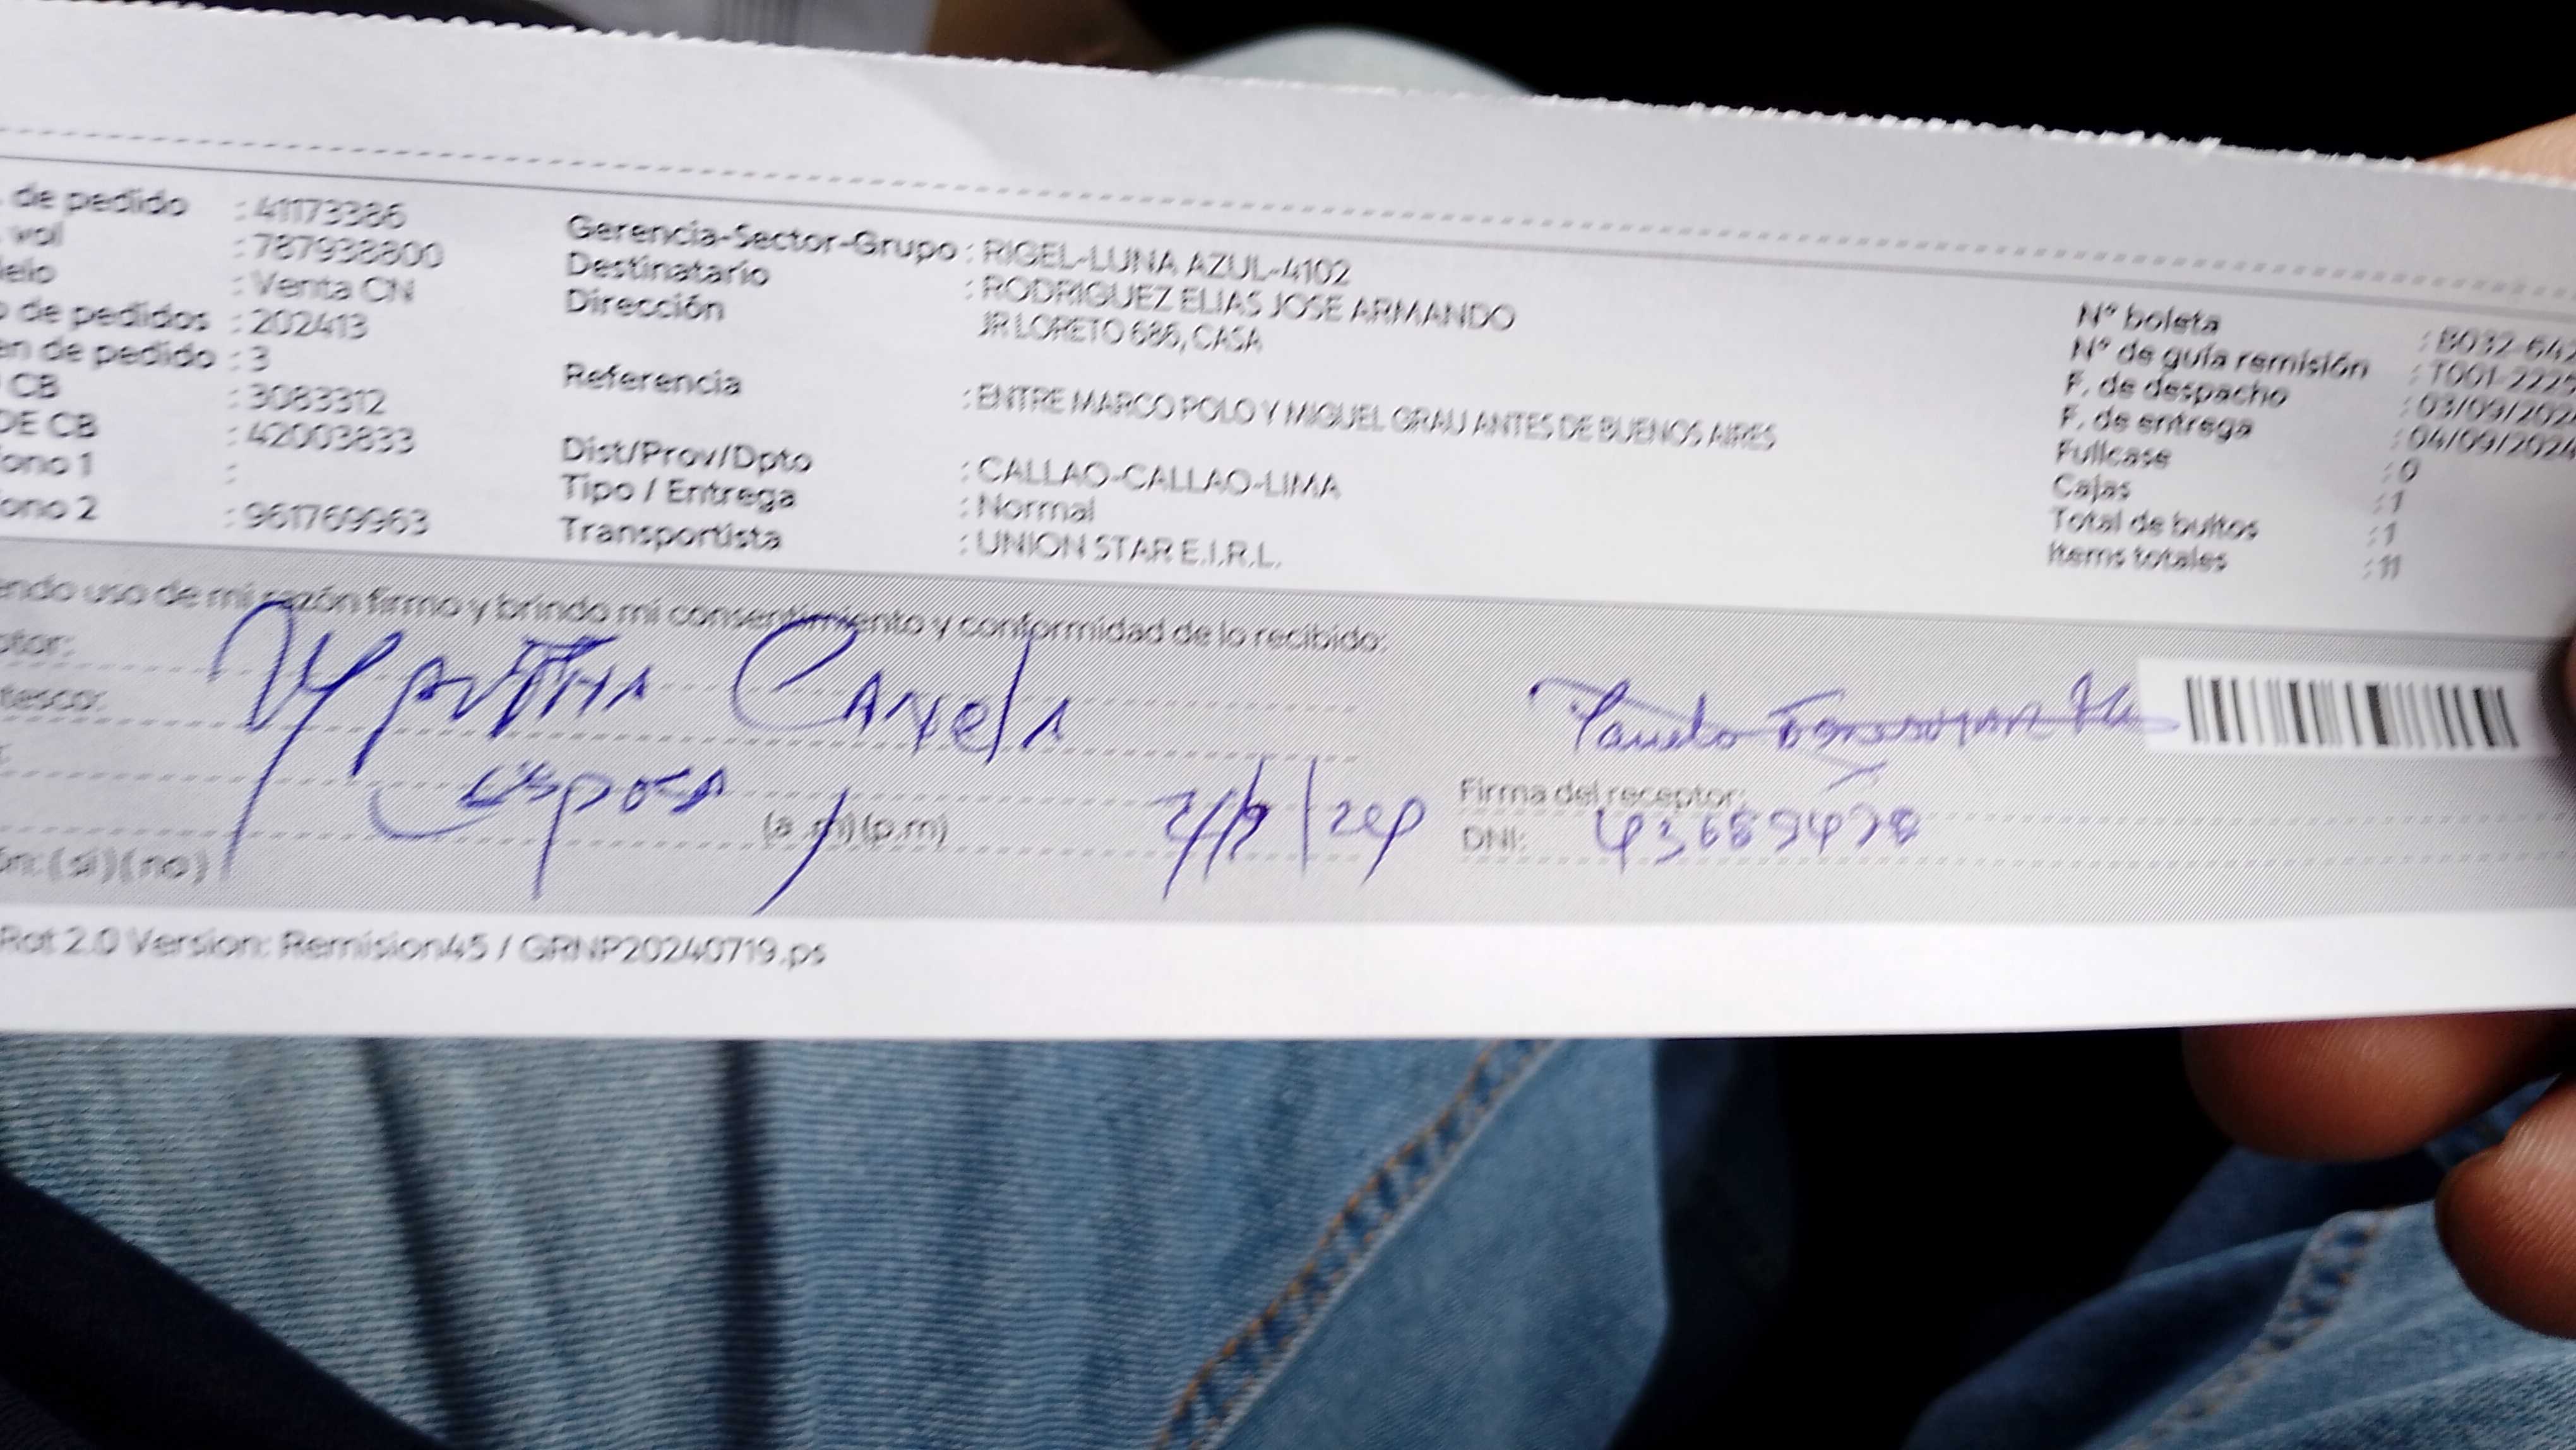 de pedido : 41173386
vol : 787938800
elo : Venta CN
o de pedidos : 202413
en de pedido : 3
CB : 3083312
DE CB : 42003833
ono 1 :
ono 2 : 961769963
Gerencia-Sector-Grupo : RIGEL-LUNA AZUL-4102
Destinatario : RODRIGUEZ ELIAS JOSE ARMANDO
Dirección JR LORETO 686, CASA
Referencia : ENTRE MARCO POLO Y MIGUEL GRAU ANTES DE BUENOS AIRES
Dist/Prov/Dpto : CALLAO-CALLAO-LIMA
Tipo / Entrega : Normal
Transportista : UNION STAR E.I.R.L.
N° boleta : B032-642
N° de guía remisión : T001-2225
F. de despacho : 03/09/202
F. de entrega : 04/09/2024
Fullcase : 0
Cajas : 1
Total de bultos : 1
Items totales : 11
endo uso de mi razón firmo y brindo mi consentimiento y conformidad de lo recibido:
ptor:
tesco:
Esposa
(a .m) (p.m)
ón: (si) (no)
Firma del receptor:
DNI:
Rot 2.0 Version: Remision45 / GRNP20240719.ps